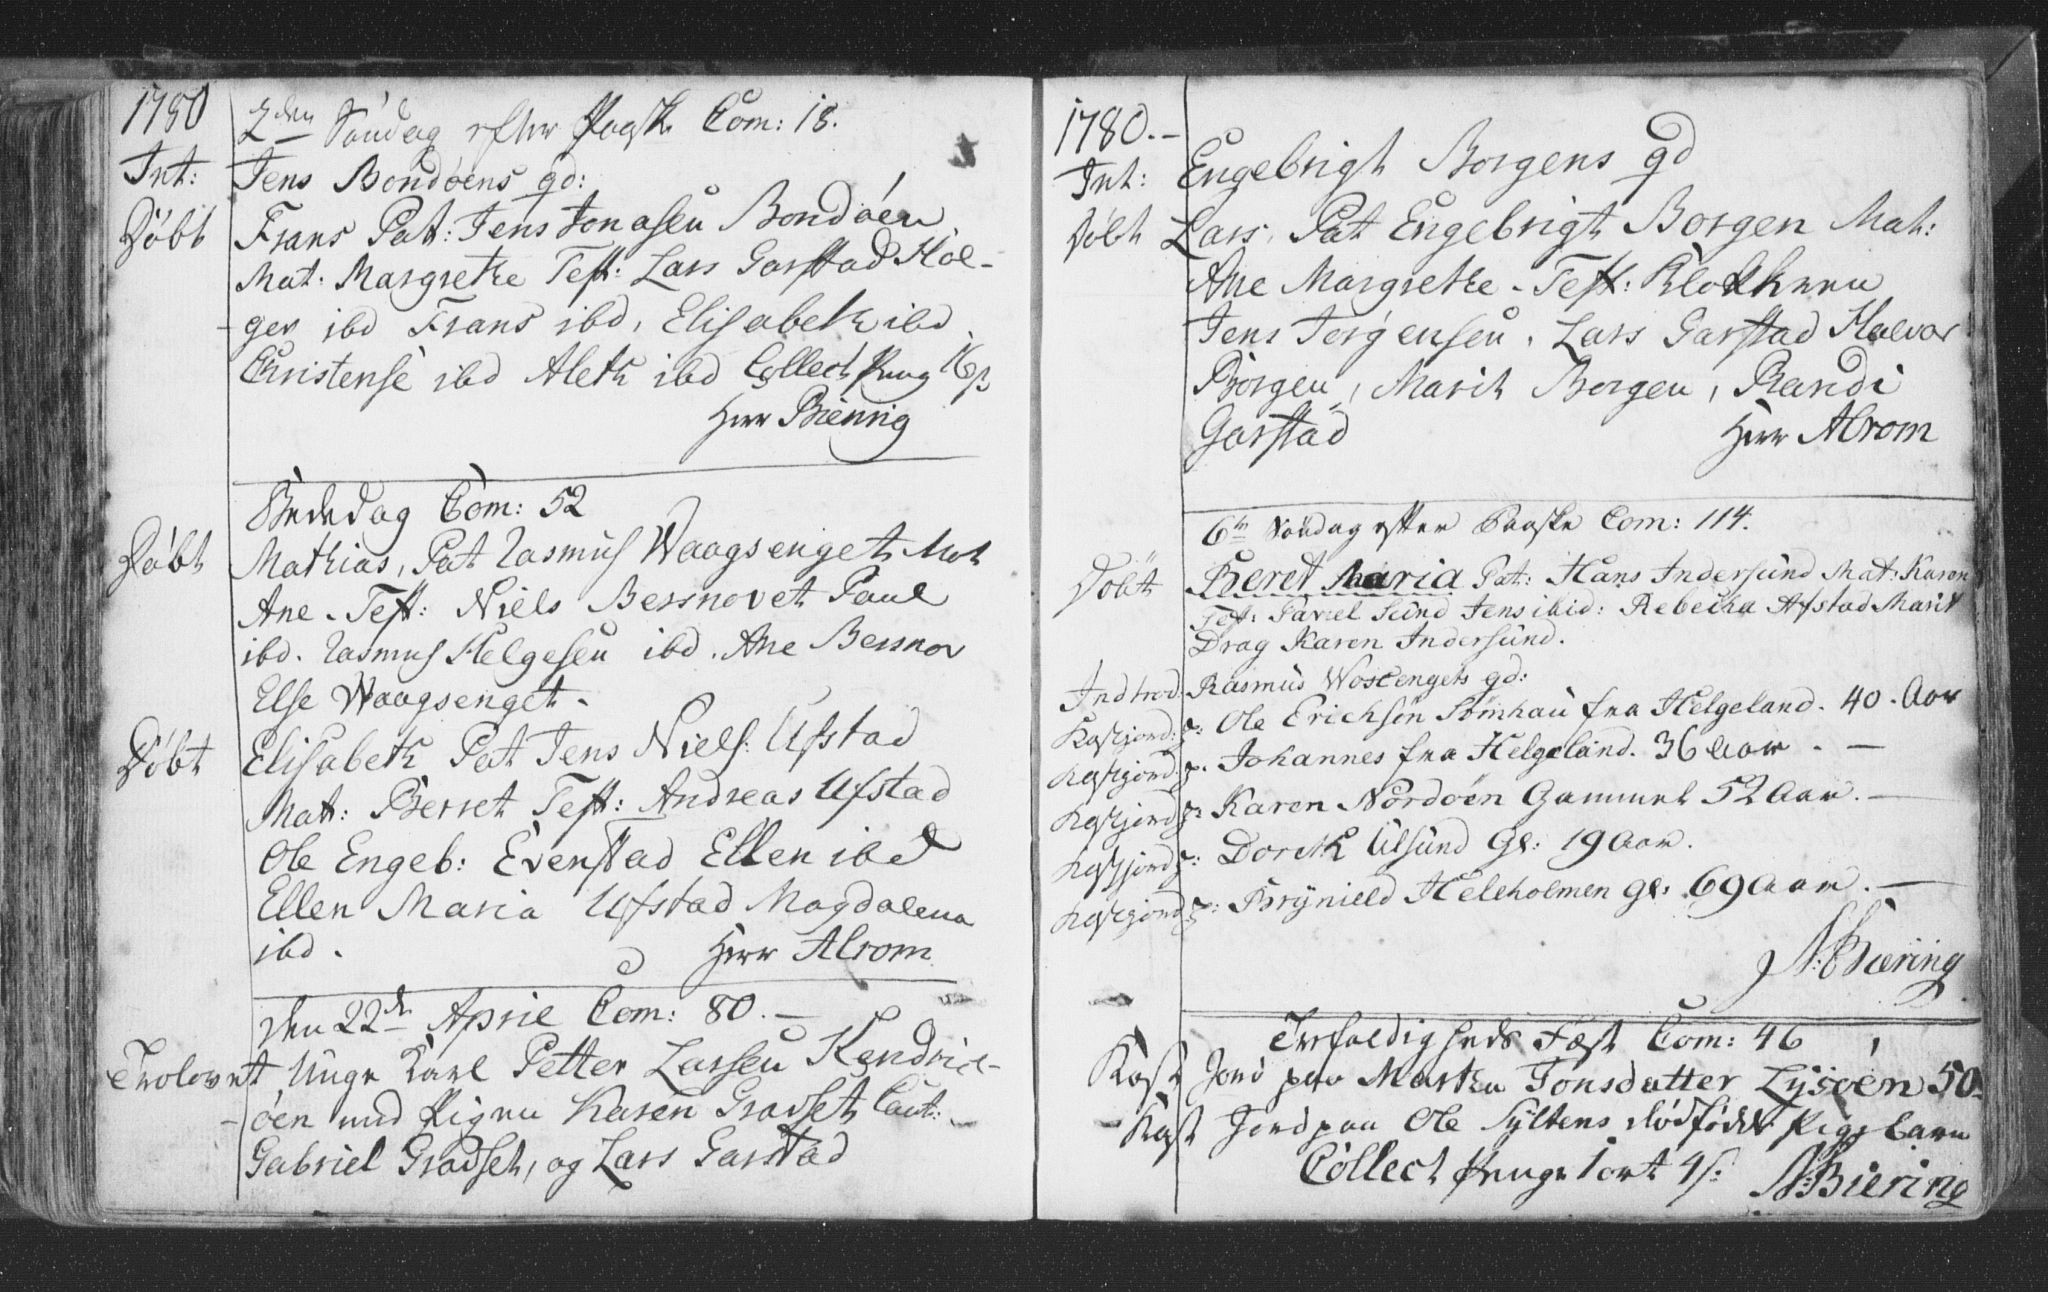 1780
2den Søndag efter Paaske Com: 18.
Int: Jens Bondøens qd:
Døbt Frans Pat: Jens Jonasen Bondøen
Mat: Margrethe Test: Lars Garstad Hol-
ger ibd Frans ibd, Elisabeth ibd
Christense ibd Aleth ibd Collect Peng 16 s
Herr Biering
Bededag Com: 52
Døbt Mathias, Pat Rasmus Waagsenget Mat
Ane - Test: Niels Bessnovet Paul
ibd. Rasmus Helgesen ibd. Ane Bessnov
Else Waagsenget -
Døbt Elisabeth Pat Jens Niels: Ufstad
Mat: Berret Test: Andreas Ufstad
Ole Engeb: Evenstad Ellen ibd
Ellen Maria Ufstad Magdalena
ibd. Herr Alrom
Den 22de April Com: 80. -
Trolovet Unge Karl Petter Larsen Hendric-
øen med Pigen Karen Gradset Caut:
Gabriel Gradset, og Lars Garstad
1780. -
Int: Engebrigt Borgens qd
Døbt Lars, Pat Engebrigt Borgen Mat:
Ane Margrethe - Test: Klokkeren
Jens Jørgensen, Lars Garstad Halvor
Borgen, Marit Borgen, Randi
Garstad Herr Alrom
6te Søndag efter Paaske Com: 114.
Døbt Beret Maria Pat: Hans Indersund Mat: Karen
Test: Sund Jens ibid: Rebecka Afstad Marit
Drag Karen Indersund.
Indtrod: Rasmus Wosengets qd:
Kastjord: p: Ole Erichsøn Sømhau fra Helgeland. 40. Aar
Kastjord: p. Johannes fra Helgeland. 36 Aar. -
Kastjord p: Karen Nordøen Gammel 52 Aar. -
Kastjord p: Doreth Ulsund Gl: 19 Aar.
Kastjord p: Brynield Heleholmen gl: 69 Aar. -
N: Biering
Trefoldigheds Fæst Com: 46
Kast Jord paa Martha Jonsdatter Lysøen 50
Kast Jord paa Ole Syltens dødfødde Pige barn
Collect Penge 1 ort 4 s: N: Biering